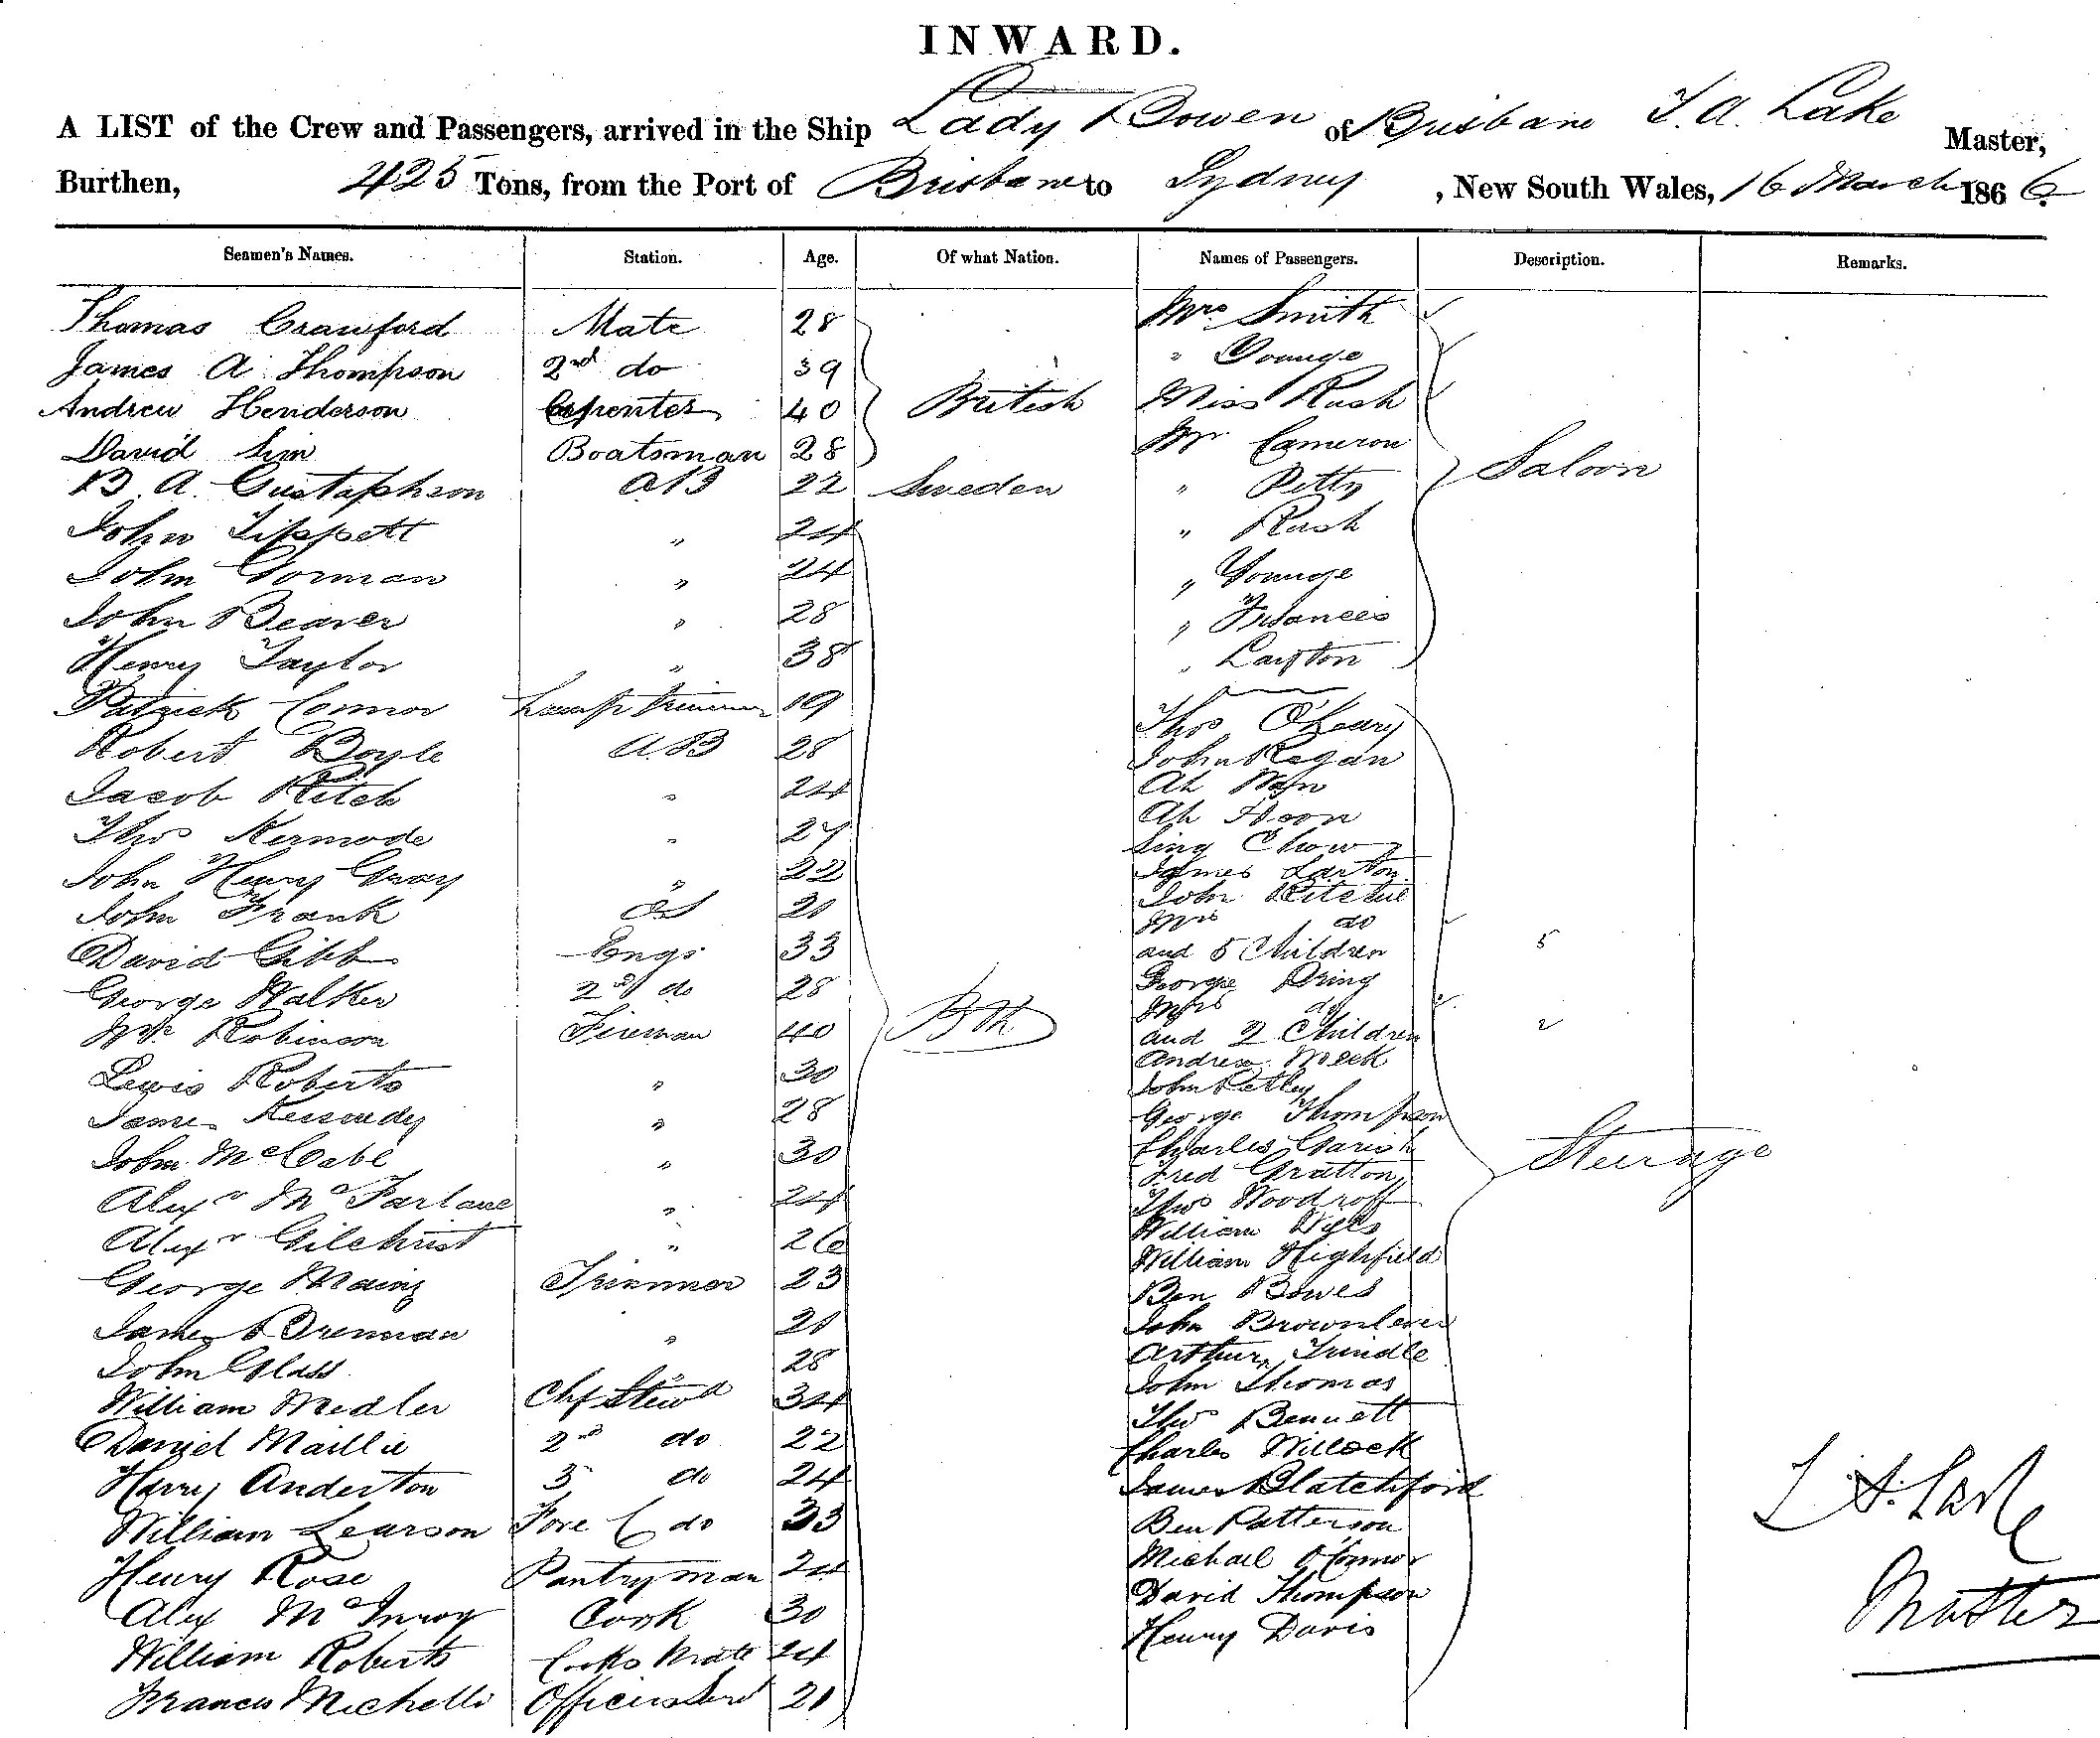 INWARD.
A LIST of the Crew and Passengers, arrived in the Ship Lady Bowen of Brisbane T. A. Lake Master,
Burthen, 425 Tons, from the Port of Brisbane to Sydney, New South Wales, 16 March 1866.
Seamen's Names. Station. Age. Of what Nation. Names of Passengers. Description. Remarks.
Thomas Crawford Mate 28 Mrs Smith
James A Thompson 2nd do 39 " Younge
Andrew Henderson Carpenter 40 British Miss Rush
David Sim Boatsman 28 Mr Cameron
B. A. Gustaphson AB 22 Sweden " Petty Saloon
John Tippett " 24 " Rush
John Gorman " 24 " Younge
John Beaver " 28 " Francis
Henry Taylor " 38 "
Patrick Connor Lamp trimmer 19 Thos O'Leary
Robert Boyle A.B 28 John Regan
Jacob Ritch " 24 Ah
Thos Kermode " 27 Ah Hoon
John Henry Gray " 22 Sing Chow
John Frank OS 21 James Laxton
David Gibb Engr 33 John Ritchie
George Walker 2nd do 28 Mrs do
Wm Robinson Fireman 40 and 5 Children 5
Lewis Roberts " 30 George Dring
James " 28 Mrs do
John McCabe " 30 and 2 Children 2
Alexr McFarlane " 24 Andrew Meek
Alexr Gilchrist " 26 John Petley
George Trimmer 23 George Thompson
James Drennan " 21 Charles Garish
John Glass 28 Fred Gratton
William Medler Chf Stewd 34 Thos Woodroff
Daniel Maillie 2nd do 22 William
Harry Anderton 3 do 24 William Highfield
William Learson Fore C do 33 Ben Bowes
Henry Rose Pantryman 24 John Brownlever
Alex McInroy Cook 30 Arthur Trindle
William Roberts Cooks Mate 24 John Thomas
Francis Michelli Officers Servt 21 Thos Bennett
Bth
Charles Willock
James Blatchford
Ben Patterson
Michael O'Connor
David Thompson
Henry Davis
Steerage
T. A. Lake
Master